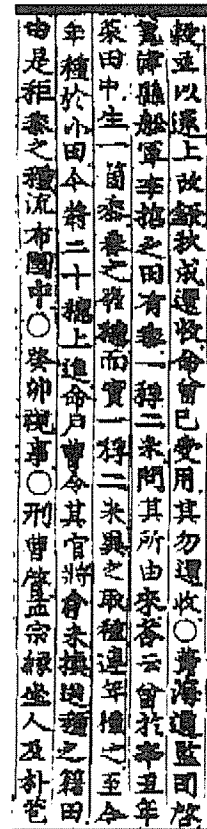 授立以還上故
收還收命曾已受用其勿還收○黃海道監司啓
甕津騎船軍李
之田有黍一稃二米問其所由來答云曾於辛丑年
黍田中生一箇
黍之
穗而實一稃二米異之取種連年種之至今
年種於小田今將二十穗上進命戶曹令其官將會米換選種之籍田
由是秬黍之種流布國中○癸卯視事○刑曹啓孟宗
坐人及朴苞